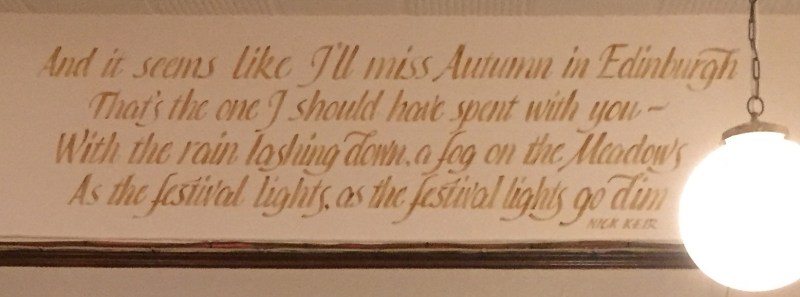 And it seems like I'll miss Autumn in Edinburgh
That's the one I should have spent with you –
With the rain lashing down, a fog on the Meadows
As the festival lights, as the festival lights go dim
NICK KEIR